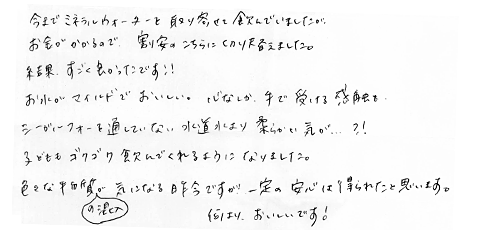 今までミネラルウォーターを取り寄せて飲んでいましたが、
お金がかかるので、割安のこちらに切り替えました。
結果、すごく良かったです!!
お水がマイルドでおいしい。心なしか、手で受ける感触も、
シーガルフォーを通していない水道水より柔らかい気が…?!
子どももゴクゴク飲んでくれるようになりました。
色々な物質の混入が気になる昨今ですが一定の安心は得られたと思います。
何より、おいしいです!